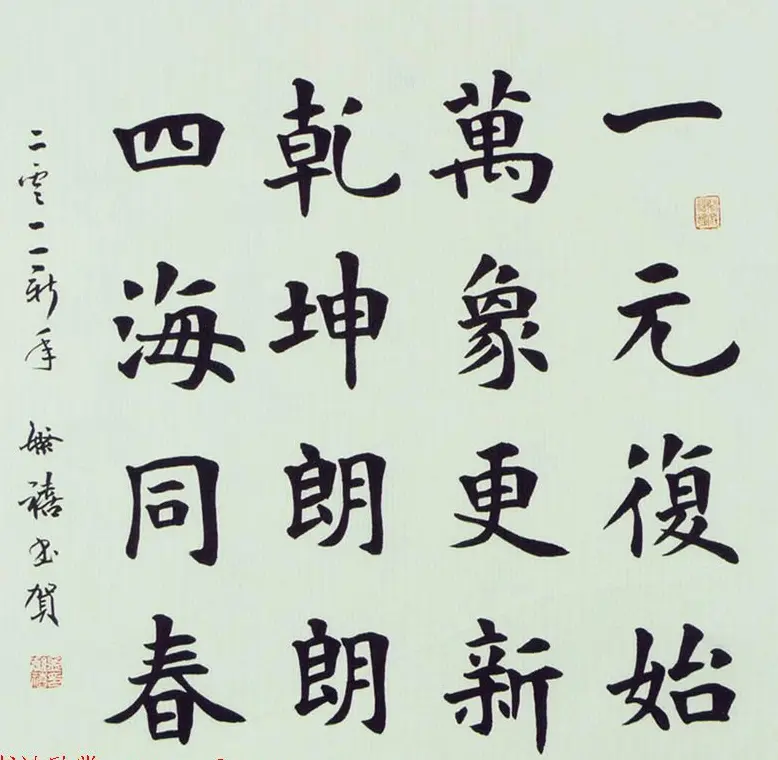 一元復始
萬象更新
乾坤朗朗
四海同春
二零一一新年 繁禧書賀